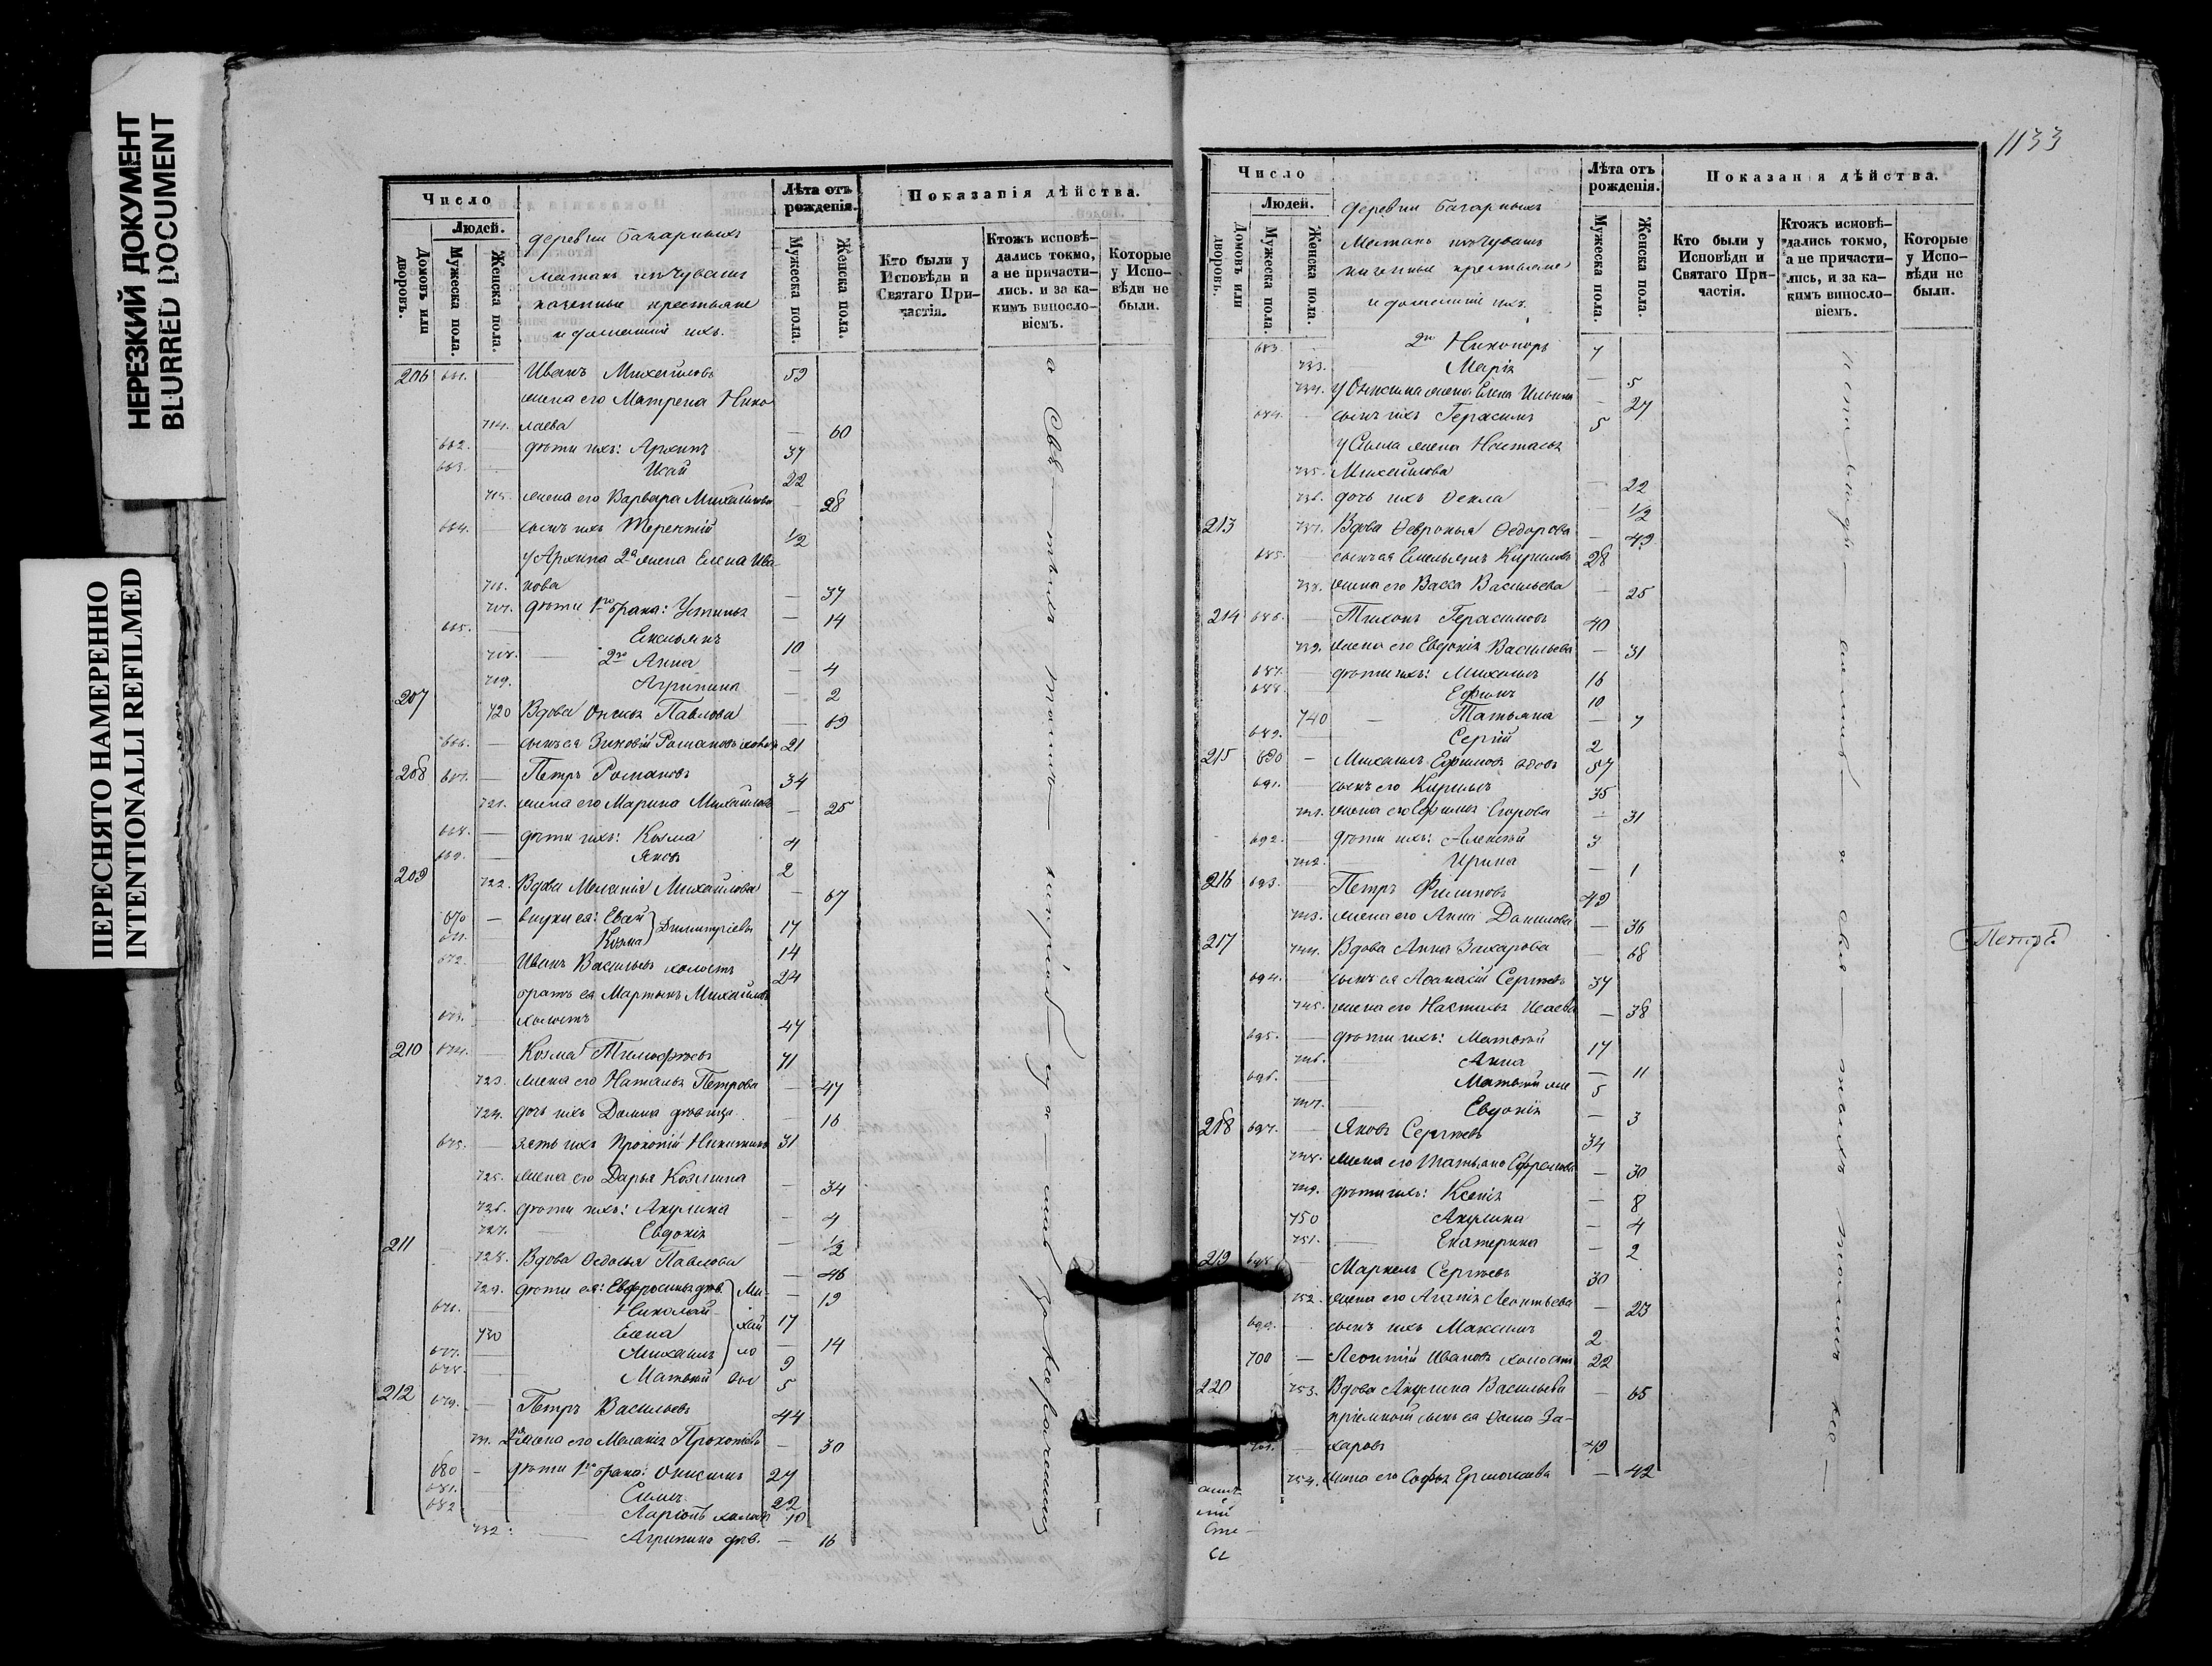 НЕРЕЗКИЙ ДОКУМЕНТ
BLURRED DOCUMENT
ПЕРЕСНЯТО НАМЕРЕННО
INTENTIONALLI REFILMED
Число
Людей.
Домовъ или дворовъ.
Мужеска пола.
Женска пола.
деревни
казенные крестьяне
и домашнiи ихъ.
Лѣта отъ рожденiя.
Мужеска пола.
Женска пола.
Показанiя дѣйства.
Кто были у Исповѣди и Святаго Причастiя.
Ктожъ исповѣдались токмо, а не причастились. и за какимъ винословiемъ.
Которые у Исповѣди не были.
206 661. — Иванъ Михайловъ 59
жена его Матрена Нико
714. лаева — 60
662. — дѣти ихъ: Архипъ 37
663. — Исай 22
715. жена его Варвара Михайлова — 28
664. — сынъ ихъ Терентiй 1/2
у Архипа 2я жена Елена Ива
716. нова — 37
717. дѣти 1го брака: Устинья — 14
665. — Емельянъ 10
718. — 2го Анна — 4
719. Агрипина — 2
207 720 Вдова Павлова — 69
666. — сынъ ея Зиновiй Романовъ 21
208 667. — Петръ Романовъ 34
721. жена его Марина Михайлова — 25
668. — дѣти ихъ: Козма 4
669. — Яковъ 2
209 722. Вдова Меланiя Михайлова — 67
670 — внуки ея: Евсей } Димитрiевы 17
671. Козма 14
672. — Иванъ Васильевъ холостъ 24
братъ ея Мартынъ Михайловъ
673. — холостъ 47
210 674. — Козма Тимофѣевъ 71
723. жена его Наталья Петрова — 47
724. дочь ихъ Домна дѣвица — 16
675. — зять ихъ Прокопiй Никитинъ 31
725. жена его Дарья Козмина — 34
726. дѣти ихъ: Акулина — 4
727. — Евдокiя — 1/2
211 728. Вдова Федосья Павлова — 46
729. дѣти ея: Евфросинья дѣв. } Ми- — 19
676. Николай хай 17
730 Елена ло — 14
677. Михаилъ 9
678. Матвѣй вы 5
212 679. — Петръ Васильевъ 44
731. 2я жена его Меланiя Прокопьева — 30
680 — дѣти 1го брака: Онисимъ 27
681. Сила 22
682. Ларiонъ холостъ 19
732. — Агрипина дѣв. — 16
1133
Число
Людей.
Домовъ или дворовъ.
Мужеска пола.
Женска пола.
деревни
казенные крестьяне
и домашнiи ихъ.
Лѣта отъ рожденiя.
Мужеска пола.
Женска пола.
Показанiя дѣйства.
Кто были у Исповѣди и Святаго Причастiя.
Ктожъ исповѣдались токмо, а не причастились, и за какимъ винословiемъ.
Которые у Исповѣди не были.
683. 2го Никопоръ 7
733. Марiя — 5
734. у Онисима жена Елена Ильина — 27
684. — сынъ ихъ Герасимъ 5
у Силы жена Настасья
735. Михайлова — 22
736. дочь ихъ Фекла — 1/2
213 737. Вдова Февронья Федорова — 49
685. сынъ ея Емельянъ Кириловъ 28
738. жена его Васса Васильева — 25
214 686. — Тихонъ Герасимовъ 40
739. жена его Евдокiя Васильева — 31
687. — дѣти ихъ: Михаилъ 16
688. — Ефимъ 10
740 — Татьяна — 7
689. — Сергiй 2
215 690 — Михаилъ Ефимовъ вдовъ 57
691. — сынъ его Кирилъ 35
741. жена его Ефимья Егорова — 31
692. — дѣти ихъ: Алексѣй 3
742. Ирина — 1
216 693. Петръ Филиповъ 49
743. жена его Анна Данилова — 36
217 744. Вдова Анна Захарова — 68
694. — сынъ ея Афанасiй Сергѣевъ 37
745. жена его Настасья Исаева — 38
695. — дѣти ихъ: Матвѣй 17
746. Анна — 11
696. — Матвѣй 5
747. — Евдокiя — 3
218 697. — Яковъ Сергѣевъ 34
748. жена его Татьяна Ефремова — 30
749. дѣти ихъ: Ксенiя — 8
750 Акулина — 4
751. — Екатерина — 2
219 698 — Маркелъ Сергѣевъ 30
752. жена его Агапiя Леонтьева — 23
699. сынъ ихъ Максимъ 2
700 — Леонтiй Ивановъ холостъ 22
220 753. Вдова Акулина Васильева — 65
прiемной сынъ ея Фома За-
701. — харовъ 49
754. жена его Софья Ермолаева — 42
Петръ